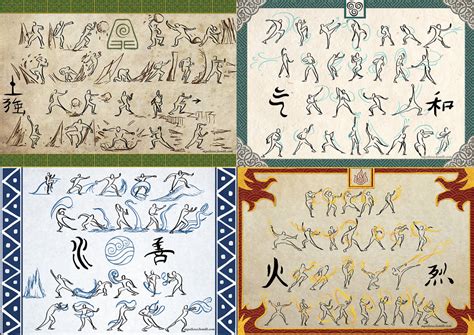 土
強
气 和
水 善
火 烈